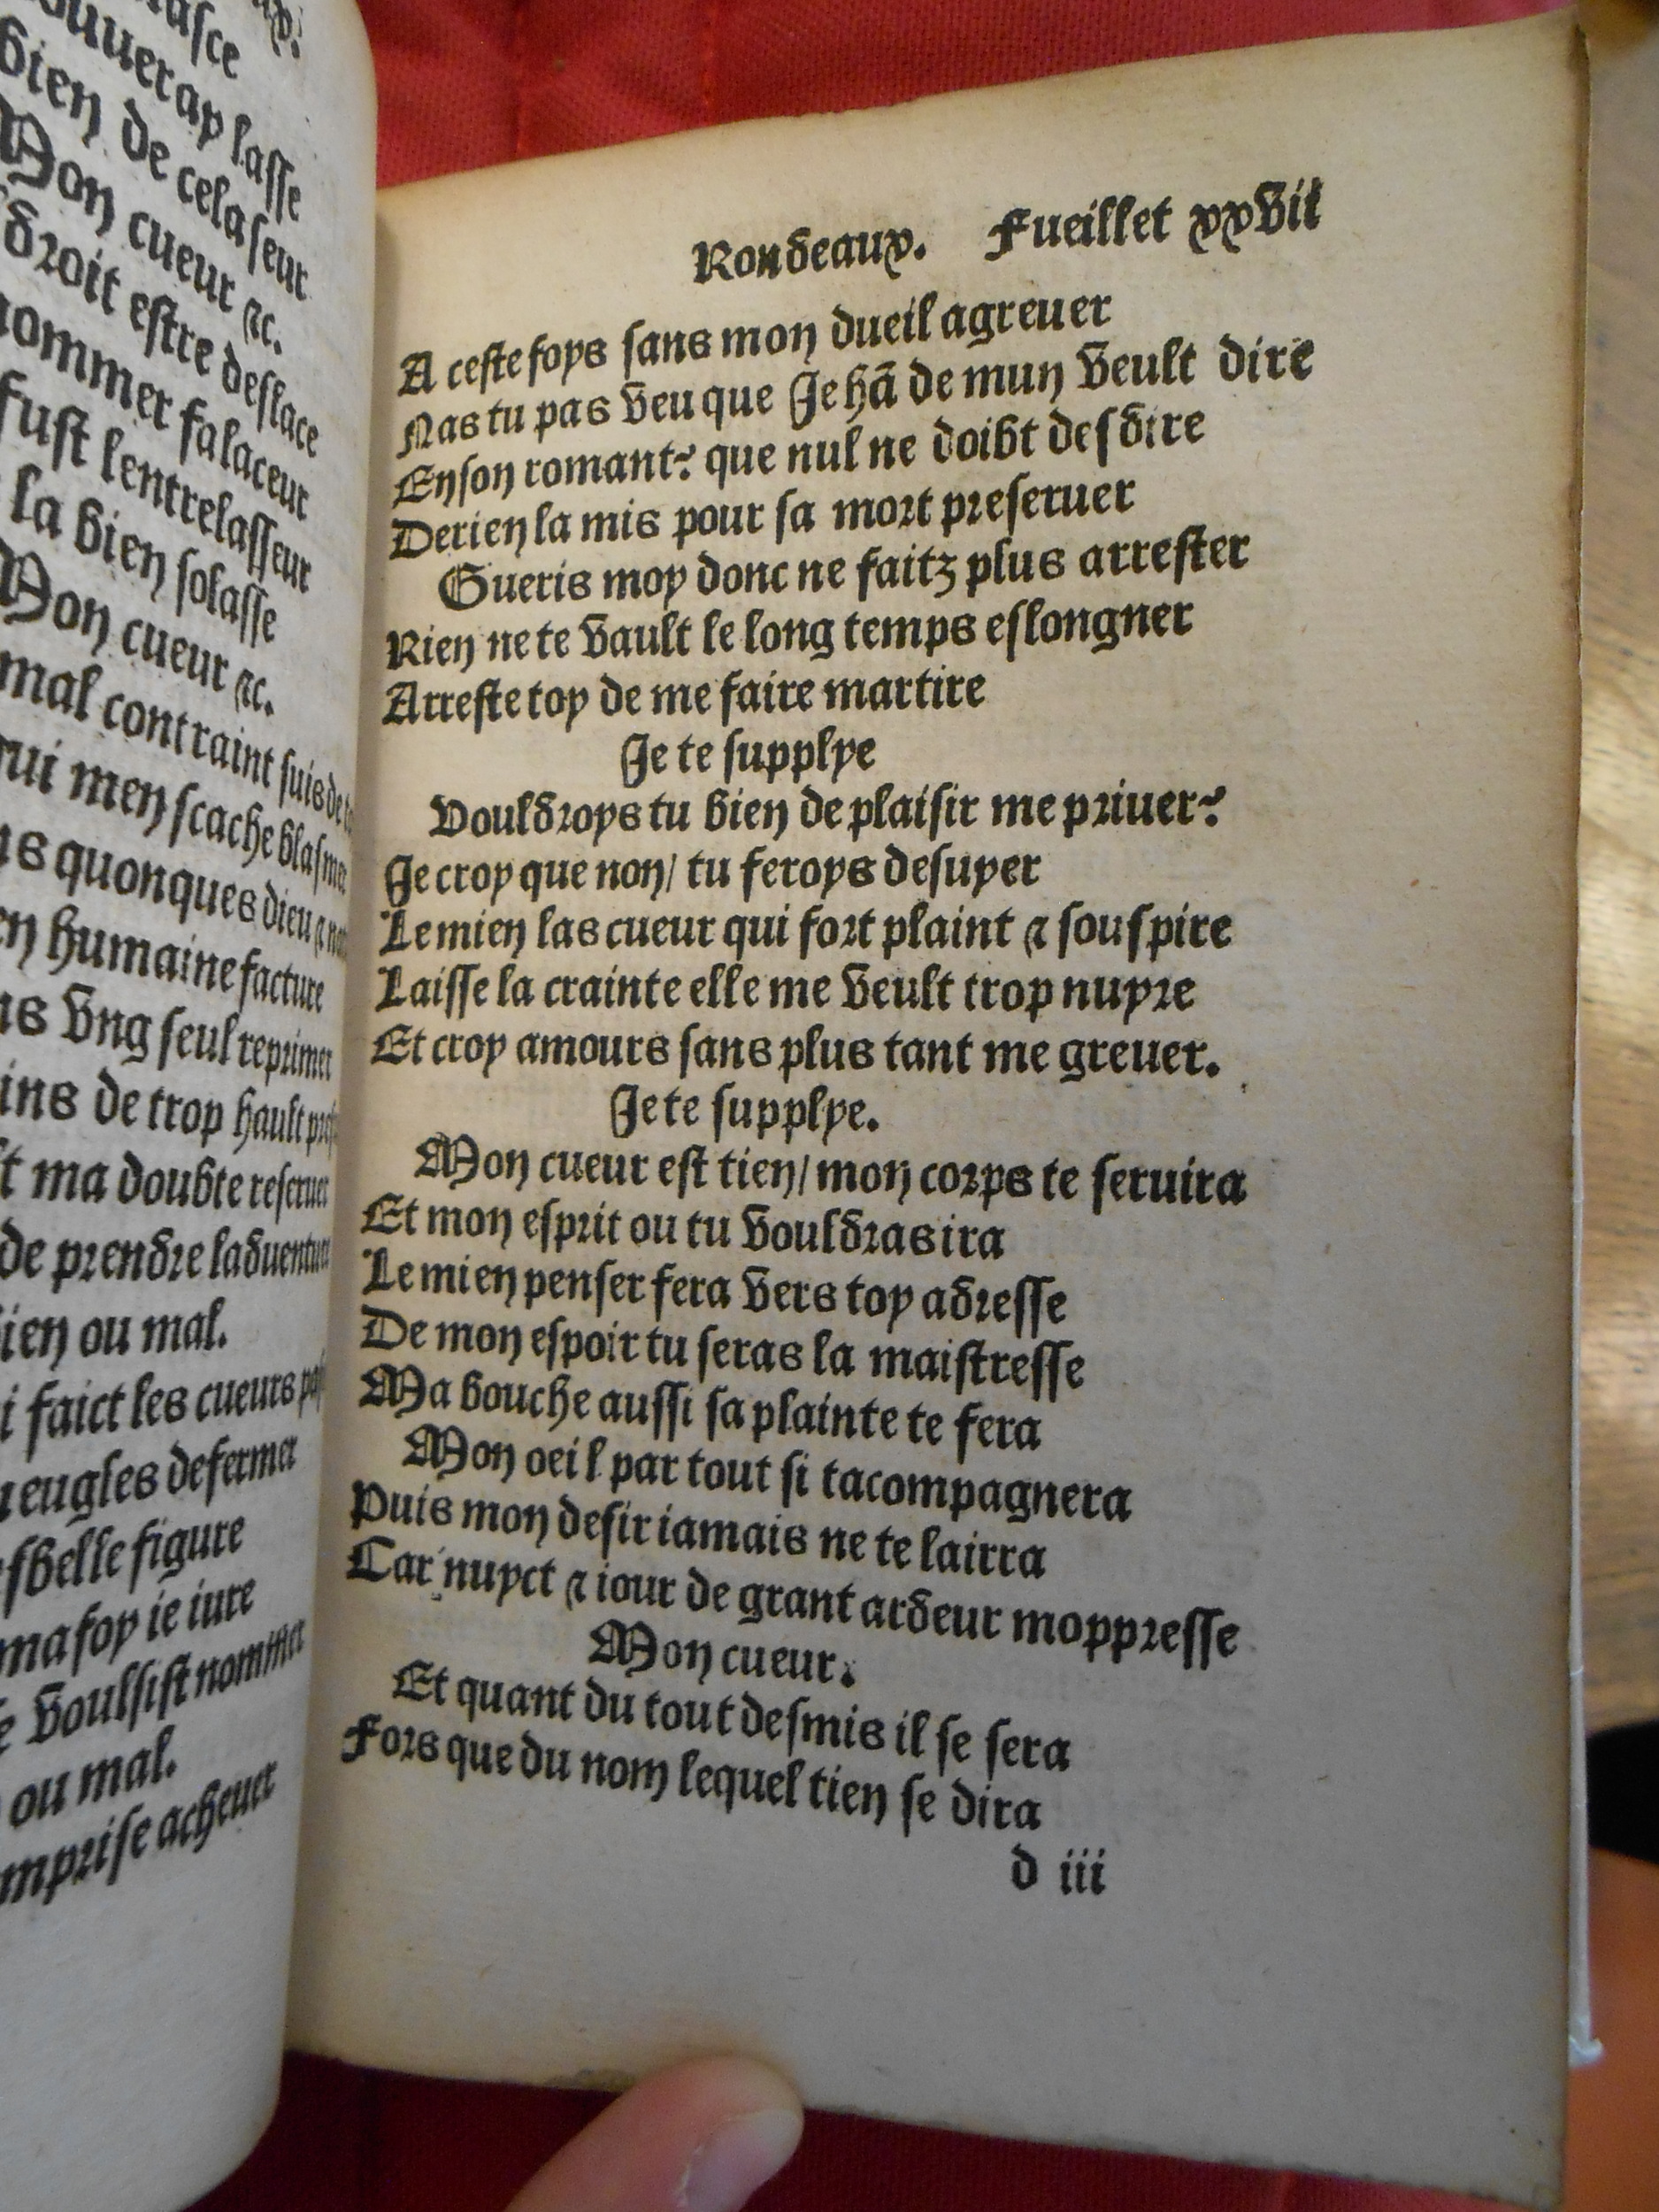 asce
ouueray lasse
bien de celaseur
Mon cueur ⁊c.
droit estre deslace
nommer falaceur
fust lentrelasseur
la bien solasse
Mon cueur ⁊c.
mal contraint suis de
qui men scache blasmer
ns quonques dieu ⁊
en humaine facture
ns vng seul reprimer
ins de trop hault
t ma doubte reseruer
de prendre laduenture
ien ou mal.
i faict les cueurs
ueugles defermer
sbelle figure
ma foy ie iure
voulsist nommer
ou mal.
mprise acheuer
Rondeaux. Fueillet xxvii
A ceste foys sans mon dueil agreuer
Nas tu pas veu que Jehã de mun veult dire
En son romant? que nul ne doibt desdire
De rien la mis pour sa mort preseruer
Gueris moy donc ne faitz plus arrester
Rien ne te vault le long temps eslongner
Arreste toy de me faire martire
Je te supplye
Vouldroys tu bien de plaisir me priuer?
Je croy que non/ tu feroys desuyer
Le mien las cueur qui fort plaint ⁊ souspire
Laisse la crainte elle me veult trop nuyre
Et croy amours sans plus tant me greuer.
Je te supplye.
Mon cueur est tien/ mon corps te seruira
Et mon esprit ou tu vouldras ira
Le mien penser fera vers toy adresse
De mon espoir tu seras la maistresse
Ma bouche aussi sa plainte te fera
Mon oeil par tout si tacompagnera
Puis mon desir iamais ne te lairra
Car nuyct ⁊ iour de grant ardeur moppresse
Mon cueur.
Et quant du tout desmis il se sera
Fors que du nom lequel tien se dira
d iii